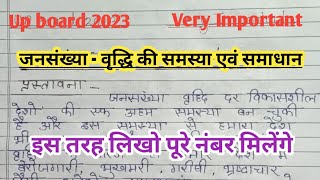 Up board 2023 Very Important
जनसंख्या - वृद्धि की समस्या एवं समाधान
प्रस्तावना -
जनसंख्या वृद्धि दर विकासशील
देशों की एक अहम समस्या बन चुकी
है और इस समस्या से हमारा देश
भी
इस तरह लिखो पूरे नंबर मिलेंगे
बेरोजगारी, भुखमरी, गरीबी, भ्रष्टाचार